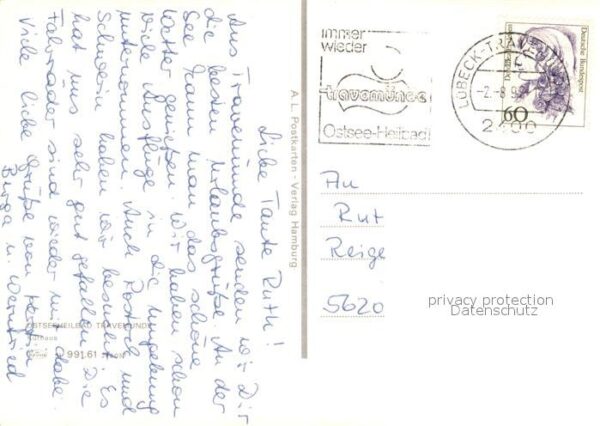 Liebe Tante Ruth!
Aus Travemünde senden wir Dir
die besten Urlaubsgrüße. An der
See kann man das schöne
Wetter genießen. Wir haben schon
viele Ausflüge in die Umgebung
unternommen. Auch Rostock und
Schwerin haben wir besucht. Es
hat uns sehr gut gefallen. Die
Fahrräder sind wieder mit dabei.
Viele liebe Grüße von
Birga u. Wernfried
OSTSEEHEILBAD TRAVEMÜNDE
Kurhaus
991.61
A. L. Postkarten - Verlag Hamburg
immer
wieder
travemünde
Ostsee-Heilbad
LÜBECK-TRAVEMÜNDE
2400
Deutsche Bundespost
60
An
Rut
Reige
5620
privacy protection
Datenschutz